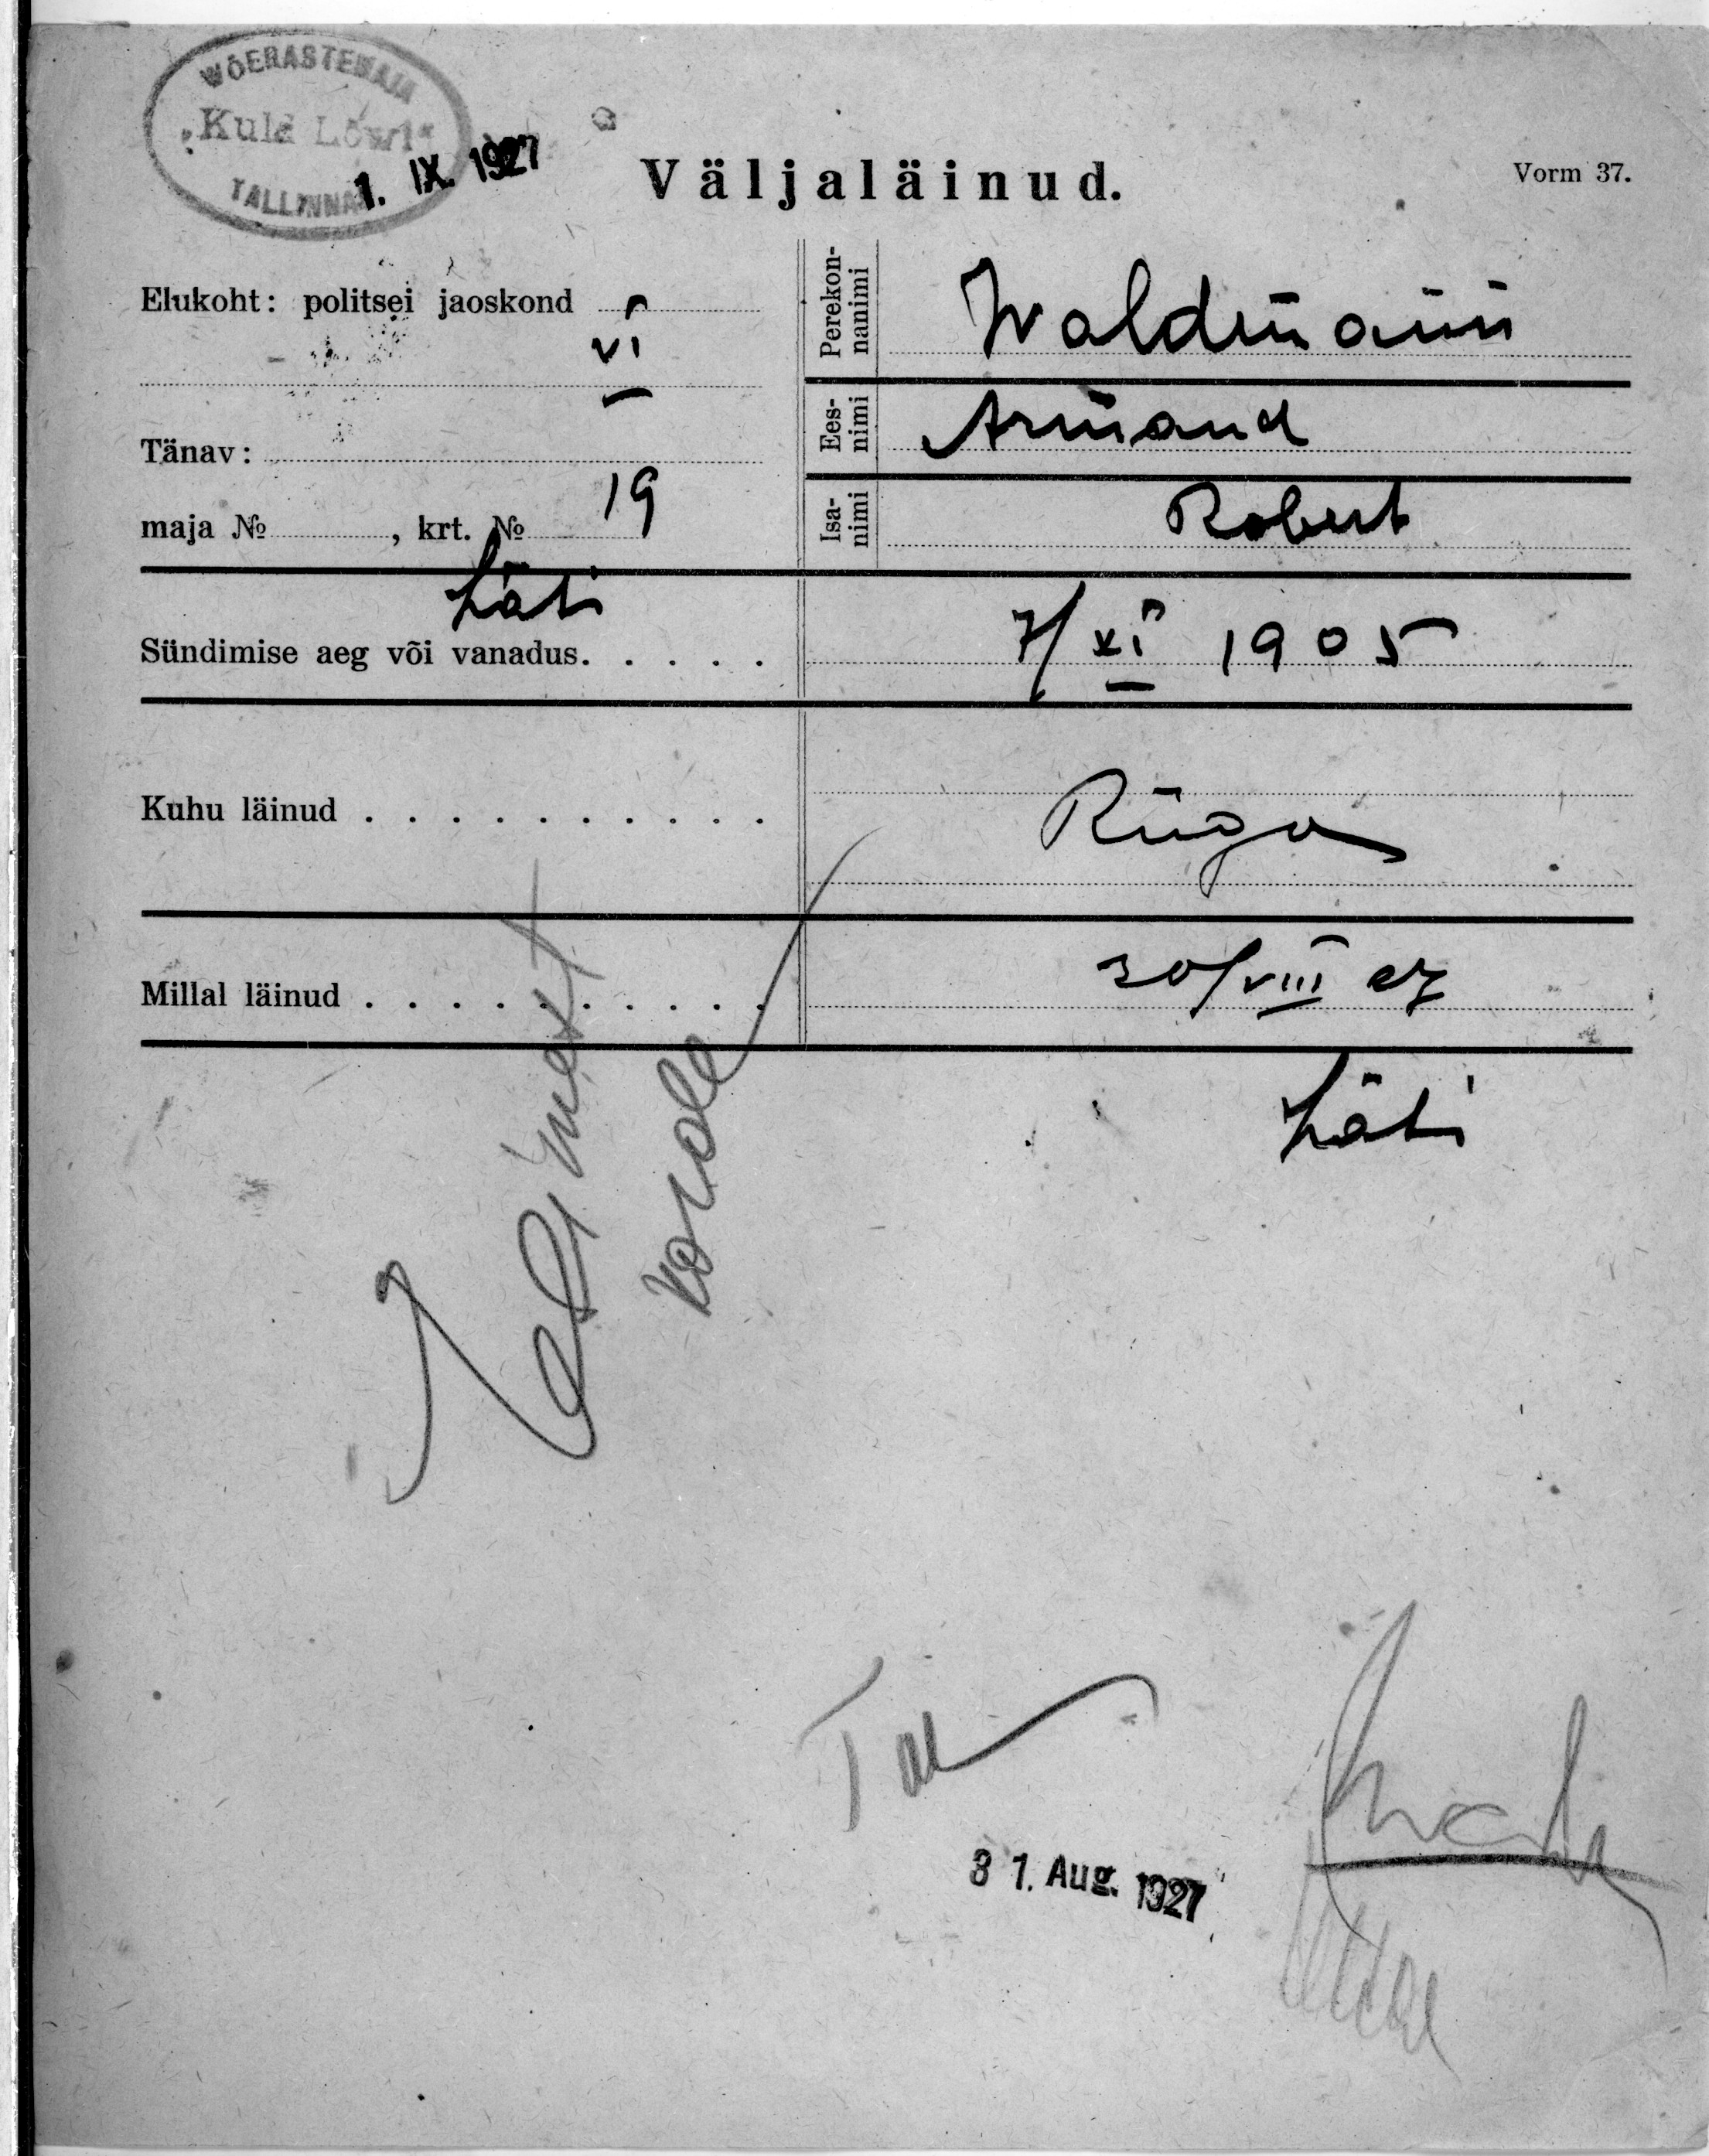 WÕERASTEMAJA
„Kuld Lõwi“
TALLINNAS
1. IX. 1927
Väljaläinud.
Vorm 37.
Elukoht: politsei jaoskond
VI
Tänav:
maja № , krt. № 19
Läti
Perekon-
nanimi
Waldmann
Ees-
nimi
Armand
Isa-
nimi
Robert
Sündimise aeg või vanadus. . . . .
7/XI 1905
Kuhu läinud . . . . . . . . . .
Riiga
Millal läinud . . . . . . . . . .
30/VIII 27
Läti
31. Aug. 1927